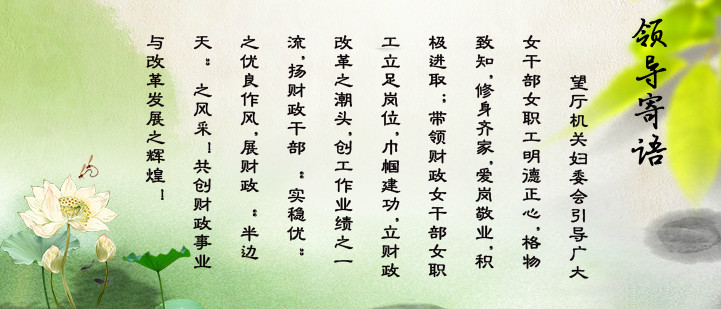 领导寄语
望厅机关妇委会引导广大
女干部女职工明德正心,格物
致知,修身齐家,爱岗敬业,积
极进取;带领财政女干部女职
工立足岗位,巾帼建功,立财政
改革之潮头,创工作业绩之一
流,扬财政干部“实稳优”
之优良作风,展财政“半边
天”之风采!共创财政事业
与改革发展之辉煌!